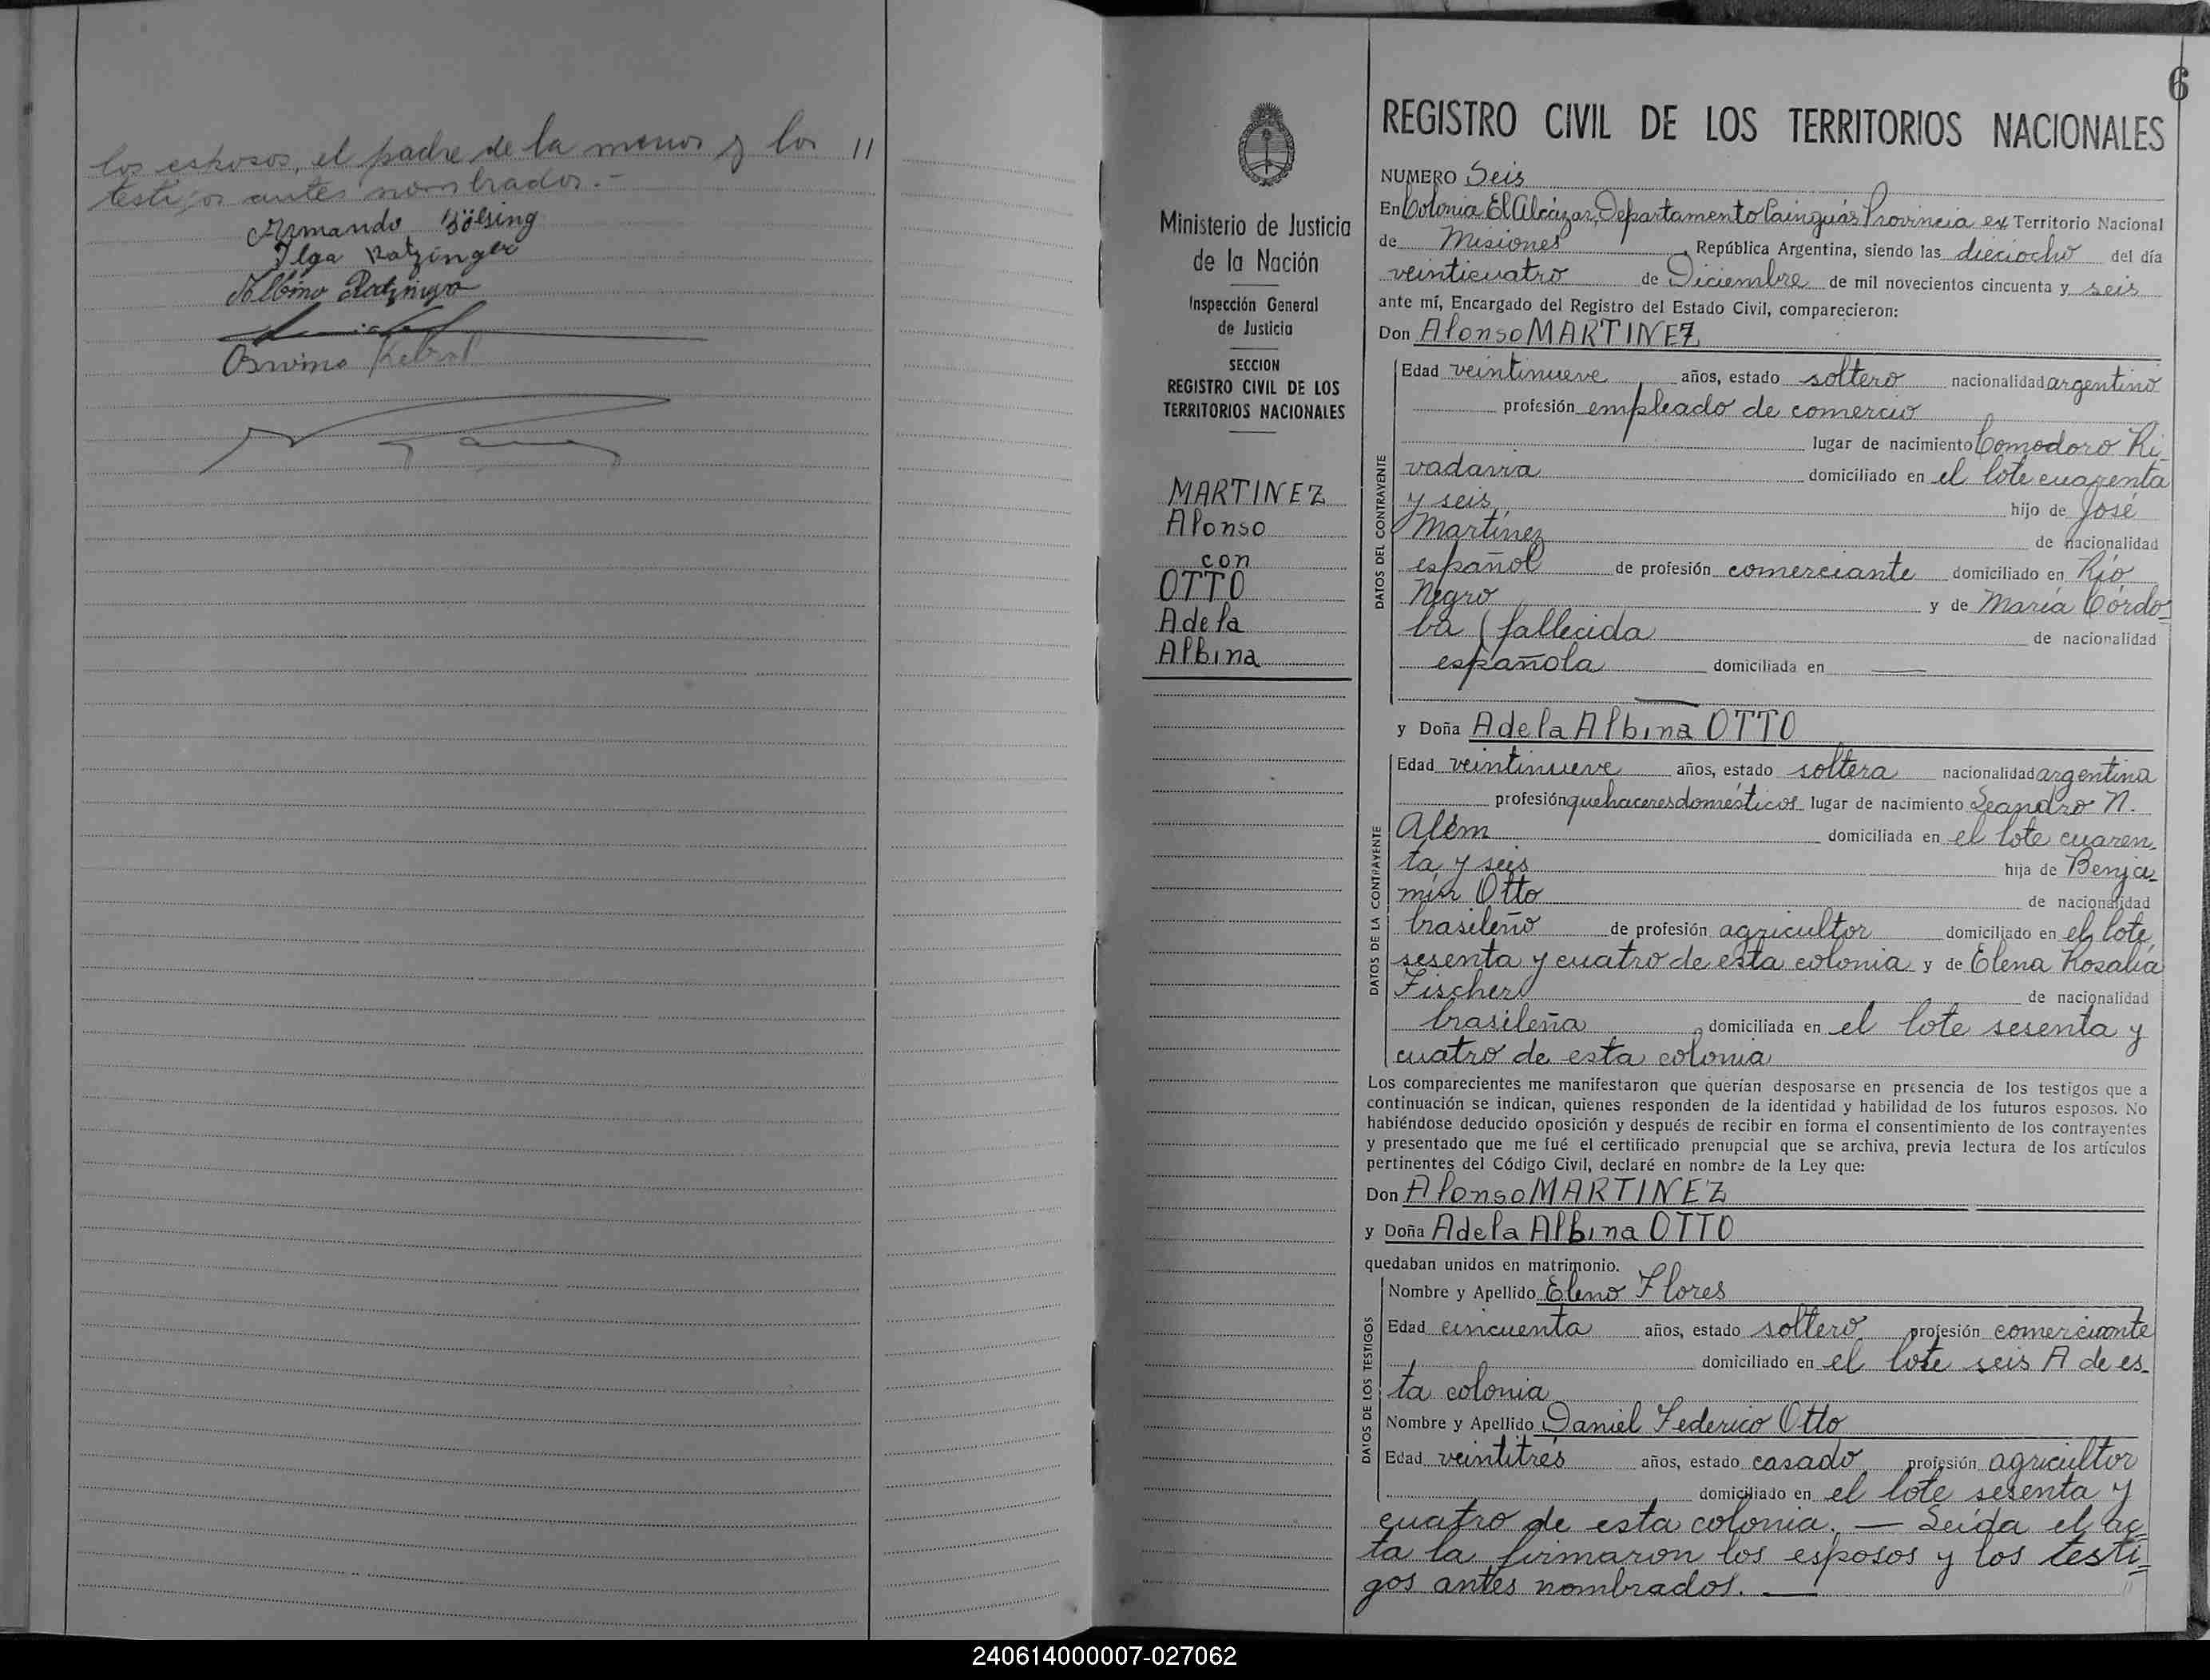 los esposos, el padre de la menor y los "
testigos antes nombrados.-
Armando Bölsing
Ilga Ratzinger
Albino Ratzinger
Osvino
6
REGISTRO CIVIL DE LOS TERRITORIOS NACIONALES
Ministerio de Justicia
de la Nación
Inspección General
de Justicia
SECCION
REGISTRO CIVIL DE LOS
TERRITORIOS NACIONALES
MARTINEZ
Alonso
con
OTTO
Adela
Albina
NUMERO Seis
En Colonia El Alcázar, Departamento Cainguás Provincia ex Territorio Nacional
de Misiones, República Argentina, siendo las dieciocho del día
veinticuatro de Diciembre de mil novecientos cincuenta y seis
ante mí, Encargado del Registro del Estado Civil, comparecieron:
Don Alonso MARTINEZ
DATOS DEL CONTRAYENTE
Edad veintinueve años, estado soltero nacionalidad argentino
profesión empleado de comercio
lugar de nacimiento Comodoro Ri-
vadavia domiciliado en el lote cuarenta
y seis hijo de José
Martínez de nacionalidad
español de profesión comerciante domiciliado en Río
Negro y de María Córdo-
ba (fallecida de nacionalidad
española domiciliada en —
—
y Doña Adela Albina OTTO
DATOS DE LA CONTRAYENTE
Edad veintinueve años, estado soltera nacionalidad argentina
profesión quehaceres domésticos lugar de nacimiento Leandro N.
Alem domiciliada en el lote cuaren-
ta y seis hija de Benja-
mín Otto de nacionalidad
brasileño de profesión agricultor domiciliado en el lote
sesenta y cuatro de esta colonia y de Elena Rosalía
Fischer de nacionalidad
brasileña domiciliada en el lote sesenta y
cuatro de esta colonia
Los comparecientes me manifestaron que querían desposarse en presencia de los testigos que a
continuación se indican, quienes responden de la identidad y habilidad de los futuros esposos. No
habiéndose deducido oposición y después de recibir en forma el consentimiento de los contrayentes
y presentado que me fué el certificado prenupcial que se archiva, previa lectura de los artículos
pertinentes del Código Civil, declaré en nombre de la Ley que:
Don Alonso MARTINEZ
y Doña Adela Albina OTTO
quedaban unidos en matrimonio.
DATOS DE LOS TESTIGOS
Nombre y Apellido Eleno Flores
Edad cincuenta años, estado soltero profesión comerciante
domiciliado en el lote seis A de es-
ta colonia
Nombre y Apellido Daniel Federico Otto
Edad veintitrés años, estado casado profesión agricultor
domiciliado en el lote sesenta y
cuatro de esta colonia. — Leída el ac=
ta la firmaron los esposos y los testi=
gos antes nombrados. —
240614000007-027062